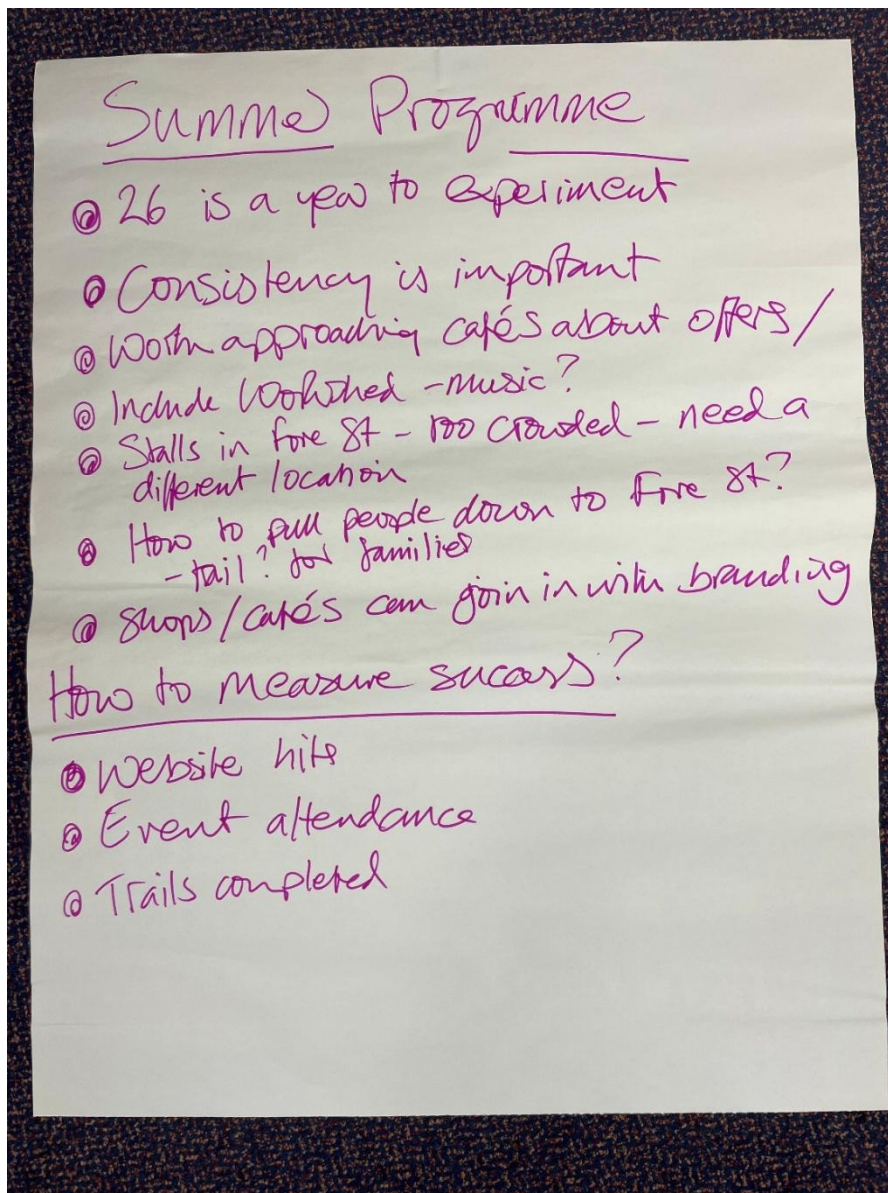 Summer Programme
26 is a year to experiment
Consistency is important
Worth approaching cafés about offers/
Include Workshed - music?
Stalls in Fore St - too crowded - need a
different location
How to pull people down to Fore St?
- tail? for families
Shops/cafés can join in with branding
How to measure success?
Website hits
Event attendance
Trails completed